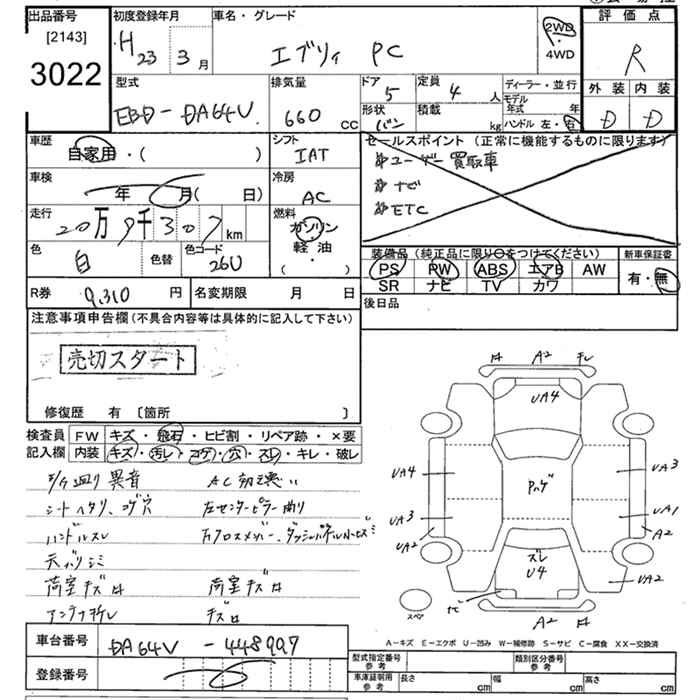 出品番号
[2143]
3022
初度登録年月
H 23 3月
車名・グレード
エブリィ PC
2WD
・
4WD
評価点
R
外装 内装
D D
型式
EBD-DA64V
排気量
660 cc
ドア
5
定員
4 人
形状
バン
積載
kg
ディーラー・並行
モデル
年式 年
ハンドル 左・右
車歴
自家用・( )
シフト
IAT
車検
年 月( 日)
冷房
AC
走行
20万9千307km
燃料
ガソリン
軽油
( ・ )
色
白
色替
色コード
26U
R券 9,310 円
名変期限 月 日
セールスポイント (正常に機能するものに限ります)
ユーザー買取車
ナビ
ETC
装備品 (純正品に限り○をつけてください)
新車保証書
PS PW ABS エアB AW
SR ナビ TV カワ
有・無
後日品
注意事項申告欄(不具合内容等は具体的に記入して下さい)
売切スタート
修復歴 有 〔箇所 〕
検査員
記入欄
FW キズ・飛石・ヒビ割・リペア跡・×要
内装 キズ・汚レ・コゲ・穴・スレ・キレ・破レ
異音
シートヘタリ、コゲ穴
左センターピラー曲り
ハンドルスレ
天バリシミ
荷室キズロ
荷室キズロ
アンテナ折レ
キズロ
A2
UA4
UA4
UA3
UA3
UA1
UA2
A2
UA2
スレ
U4
スペア
A2
A-キズ E-エクボ U-凹み W-補修跡 S-サビ C-腐食 XX-交換済
車台番号
DA64V-448997
登録番号
型式指定番号
参考
類別区分番号
参考
車庫証明用
参考
長さ cm
幅 cm
高さ cm